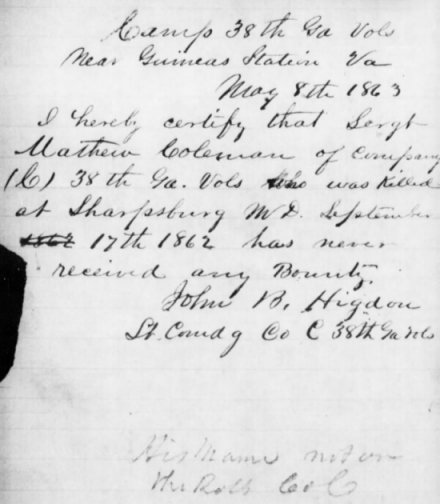 Camp 38th Ga Vols
Near Guineas Station Va
May 8th 1863
I hereby certify that Sergt
Mathew Coleman of company
(C) 38th Ga. Vols who was killed
at Sharpsburg M.D. September
1862 17th 1862 has never
received any Bounty.
John B. Higdon
Lt. Comdg Co C 38th Ga Vols
His Name not on
the Rolls Co C